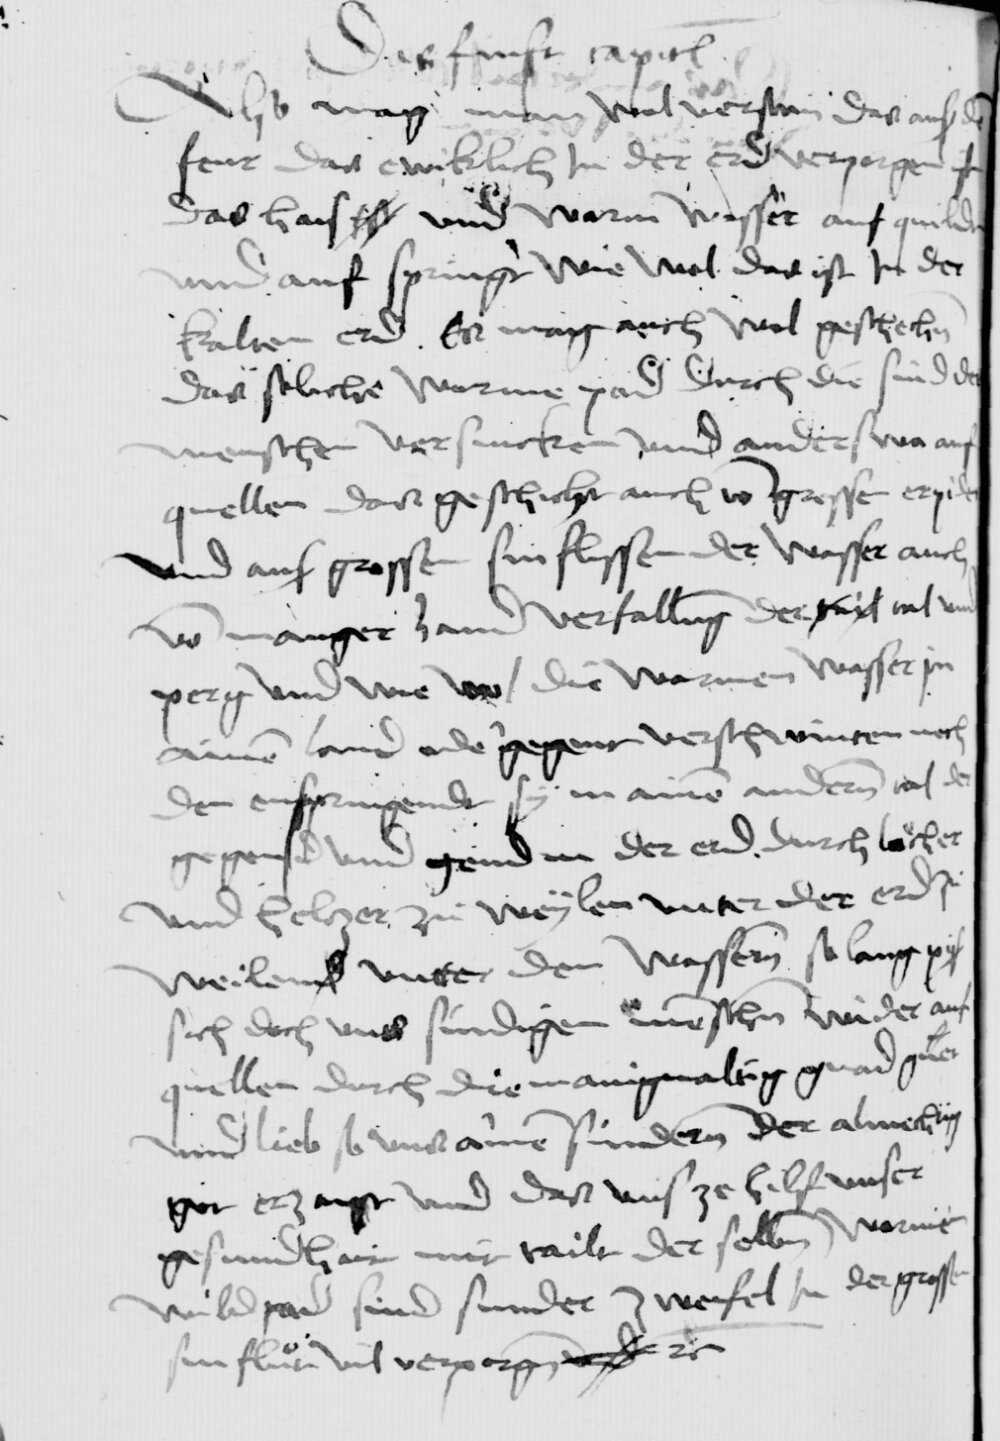 Das funft capitl
Also mag man wol versten das auß de
feur das ewiklich In der erd verporgen ist
das haiß und warm wasser auf quildt
und auf springt wie wol das ist In der
kalten erd Es mag auch wol geschechn
das sölliche warme pad durch die sünd der
menschen versincken und anderswa auf
quellen das geschicht auch vo grossen erpidn
und auß grossen sinflussen der wasser auch
vo manger hand verfallung der tal und
perg und wie wol die warmen wasser in
aime land oder gegent verschwinten noch
den enspringendt sy in aime andern tal der
gegend und gend in der erd durch löcher
und helczer zu weylen unter der erd zu
weilen unter den wassern so lang piß
sich doch uns sündigen menschn wider auf
quellen durch die manigualtig gnad güet
und lieb so uns armen sündern der almechtig
got erzaigt und das uns ze hilf unser
gesundhait mit tailt der selbn warme
wildpad sind sunder zweifel In der grossen
sinfluß vil verporgn